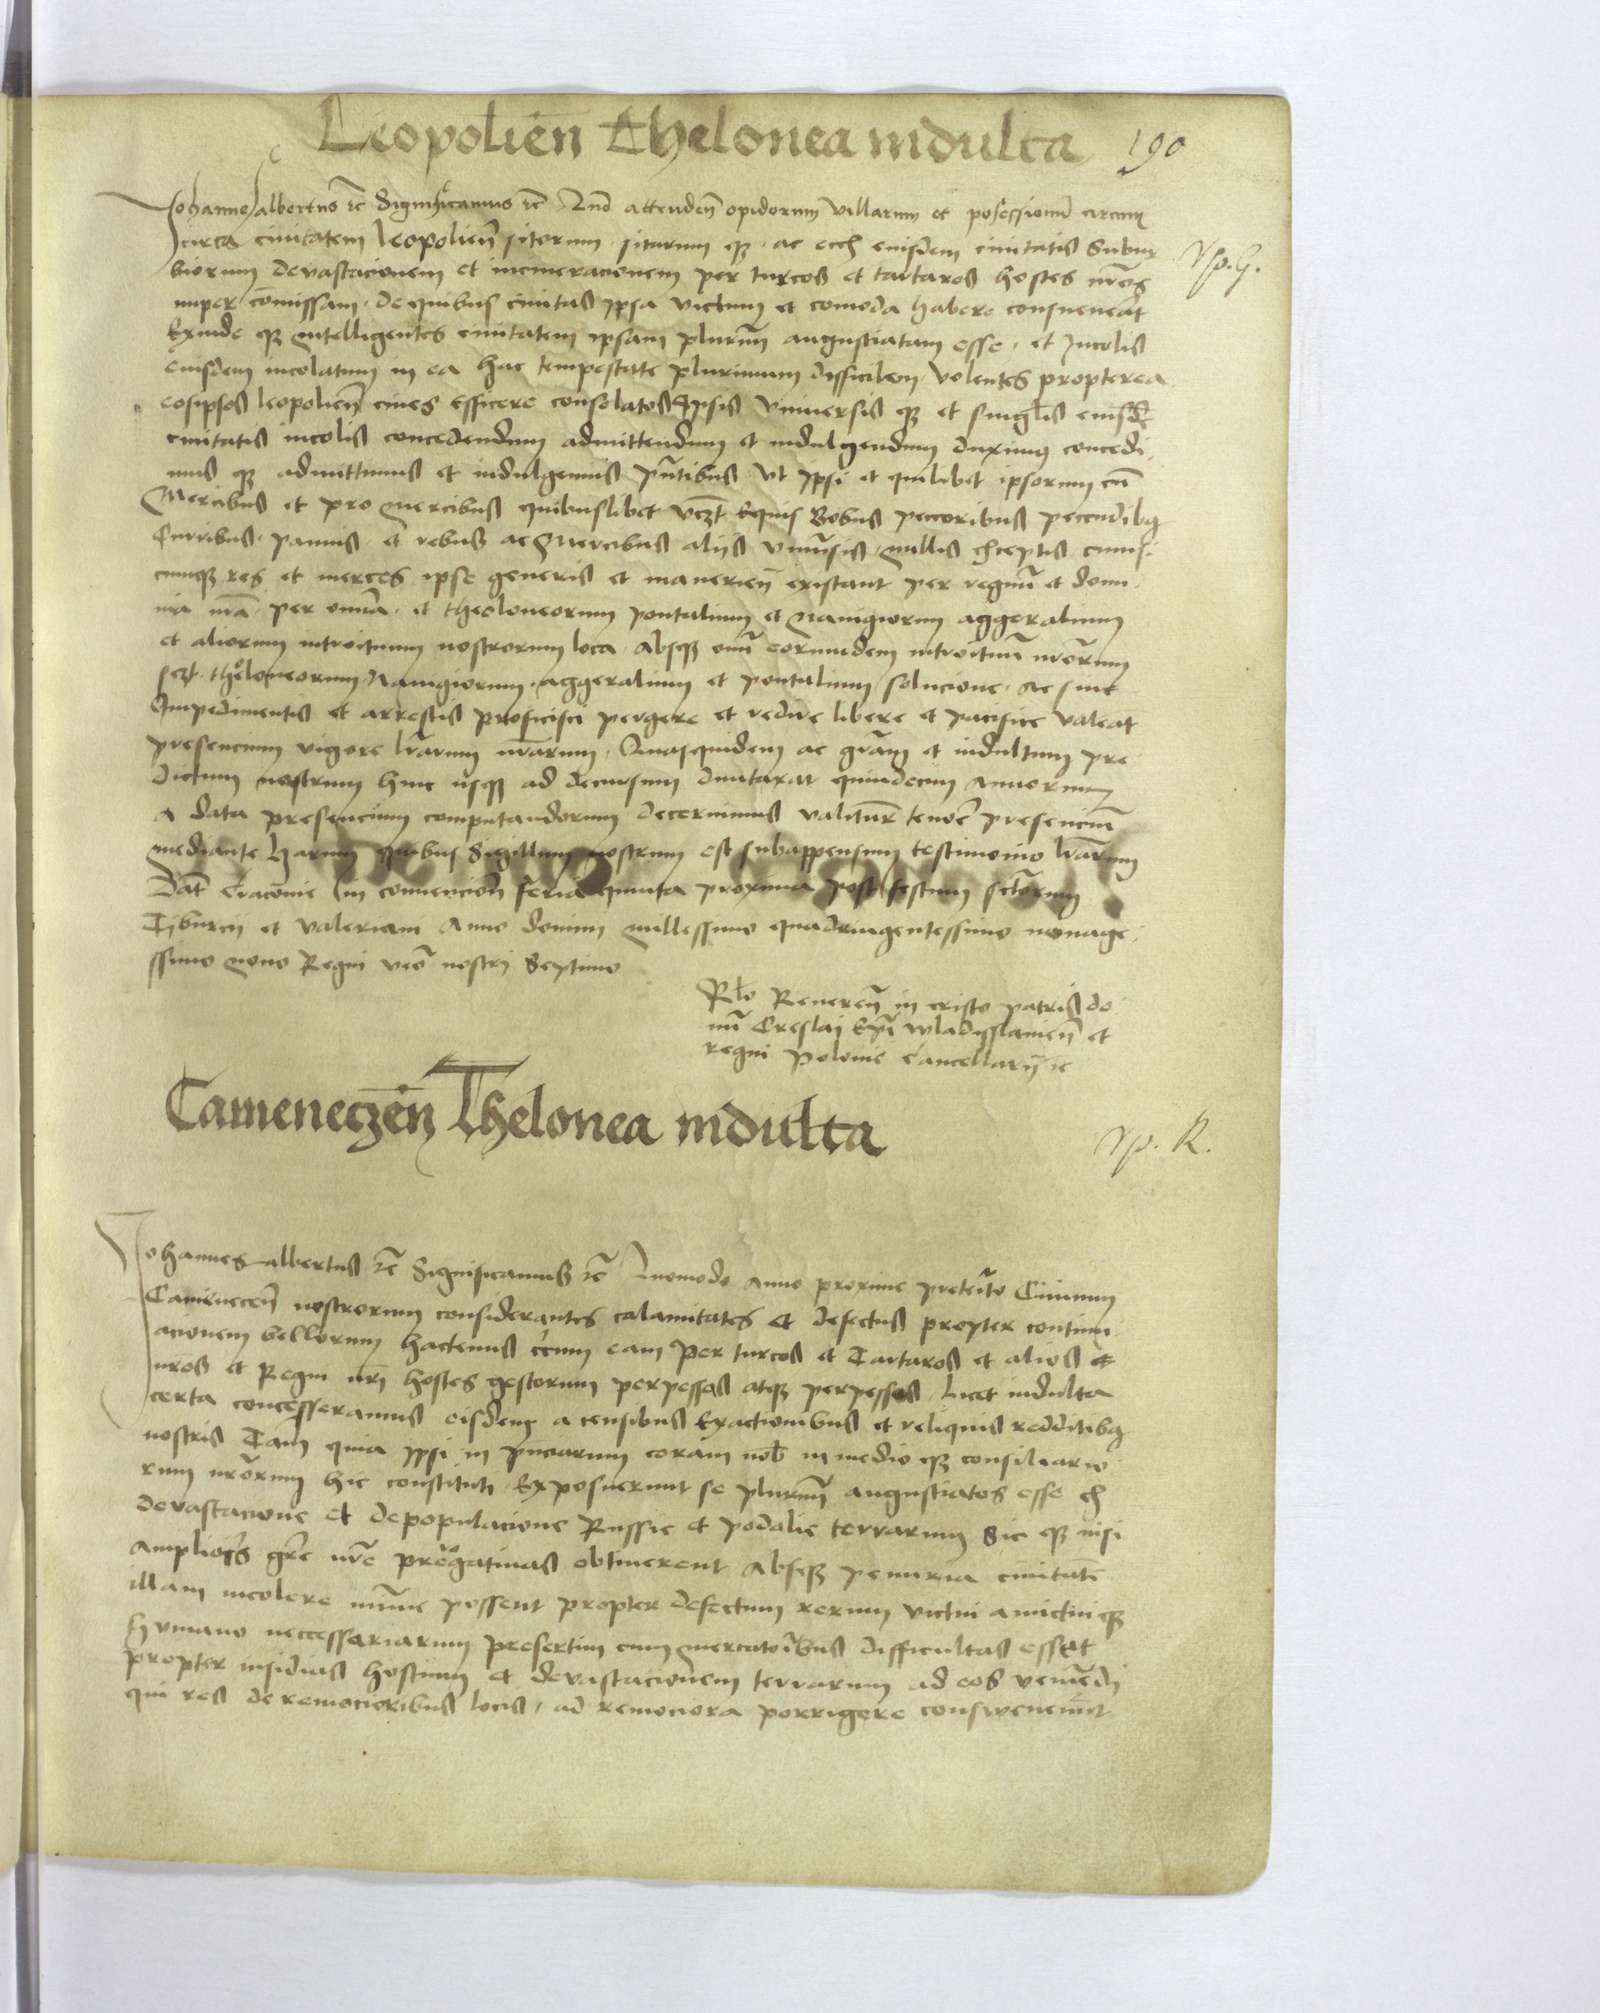 Leopolien̄ Thelonea indulta 190
Johannes albertus rc̄ Significamus rc̄ Qnd attenden̄ opidorum villarum et possessionū circum
circa civitatem leopolien̄ sitorum sitarum qȝ ac eciam eiusdem civitatis Subur
biorum devastacionem et incineracionem per turcos et tartaros hostes nr̄os
nuper cōmissam de quibus civitas ipsa victum et comoda habere consueverat
Exinde qȝ intelligentes civitatem ipsam plurimū angustiatam esse et Incolis
eiusdem incolatum in ea hac tempestate plurimum difficilem volentes propterea
eosipsos leopolien̄ cives efficere consolatos Ipsis universis qȝ et singlīs eiusdē
civitatis incolis concedendum admittendum et indulgendum duximus concedi
mus qȝ admittimus et indulgemus pn̄tibus Ut ipsi et quilibet ipsorum cū
Mercibus et pro mercibus quibuslibet vcȝt Equis Bobus peccoribus peccudibȝ
Curribus pannis et rebus ac Mercibus aliis univ̄sis nullis exceptis cuius
cumqȝ res et merces ipse generis et manerien̄ existant per regnū et domi
nia nr̄a per omnia et theoloneorum pontalium et Navigiorum aggeralium
et aliorum introituum nostrorum loca absqȝ omī eorumdem introituū nr̄orum
scȝt theloneorum Navigiorum aggeralium et pontalium solucione ac sine
Impedimentis et arrestis proficisci pergere et redire libere et pacifice valeat
presencium vigore lr̄arum nr̄arum Quasquidem ac gr̄am et indultum pre
dictum nostrum hinc usqȝ ad decursum dumtaxat quindecim annorum
a data presencium computandorum decernimus valitur̄ tenoē presenciū
mediante harum quibus Sigillum nostrum est subappensum testimonio lr̄arum
Dat̄ Cracovie in convencion̄ feria quinta proxima post festum sctōrum
Tiburcii et valeriani Anno domini millessimo quadringentessimo nonage
ssimo nono Regni vero nostri Septimo
Rlo Reveren̄ in cristo patris do
nī Creslai Epī wladislavien̄ et
regni Polonie Cancellarii rc̄
Cameneczen̄ Thelonea indulta
Johannes albertus rc̄ Significamus rc̄ Quomodo anno proxime preterito Civium
Camenecen̄ nostrorum considerantes calamitates et defectus propter continu
acionem bellorum hactenus circum eam per turcos et Tartaros et alios et
nr̄os et Regni nr̄i hostes gestorum perpessas atqȝ perpessos licet indulta
certa concesseramus eisdem a censibus Exactionibus et reliquis redditibȝ
nostris Tam quia ipsi in pn̄ciarum coram nob̄ in medio qȝ consiliario
rum nr̄orum hic constituti Exposuerunt se plurimū angustiatos esse ex
devastacione et depopulacione Russie et podolie terrarum Sic qȝ nisi
ampliores gr̄e nr̄e prerogativas obtinerent Absqȝ penuria civitatē
illam incolere minīe possent propter defectum rerum victui amictui qȝ
humano neccessariarum presertim cum mercatoribus difficultas esset
propter insidias hostium et devastacionem terrarum ad eos veniēdi
qui res de remocioribus locis ad remociora porrigere consweverunt